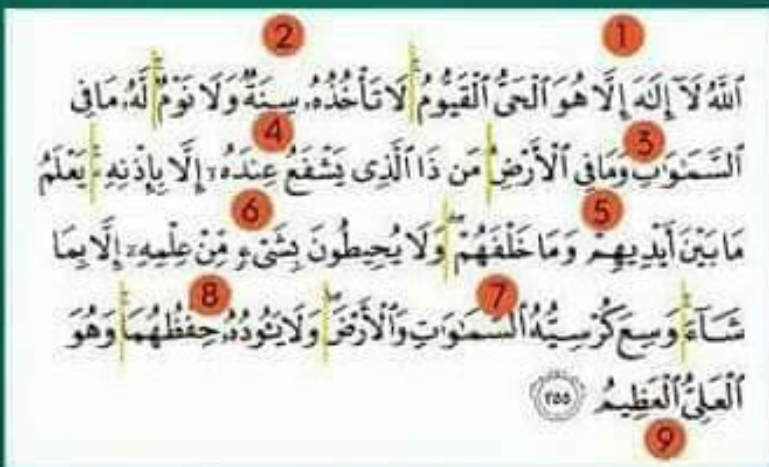 2 1
ٱللَّهُ لَآ إِلَٰهَ إِلَّا هُوَ ٱلْحَىُّ ٱلْقَيُّومُ ۚ لَا تَأْخُذُهُۥ سِنَةٌ وَلَا نَوْمٌ ۚ لَّهُۥ مَا فِى
4 3
ٱلسَّمَٰوَٰتِ وَمَا فِى ٱلْأَرْضِ ۗ مَن ذَا ٱلَّذِى يَشْفَعُ عِندَهُۥٓ إِلَّا بِإِذْنِهِۦ ۚ يَعْلَمُ
6 5
مَا بَيْنَ أَيْدِيهِمْ وَمَا خَلْفَهُمْ ۖ وَلَا يُحِيطُونَ بِشَىْءٍ مِّنْ عِلْمِهِۦٓ إِلَّا بِمَا
8 7
شَآءَ ۚ وَسِعَ كُرْسِيُّهُ ٱلسَّمَٰوَٰتِ وَٱلْأَرْضَ ۖ وَلَا يَـُٔودُهُۥ حِفْظُهُمَا ۚ وَهُوَ
ٱلْعَلِىُّ ٱلْعَظِيمُ ٢٥٥
9